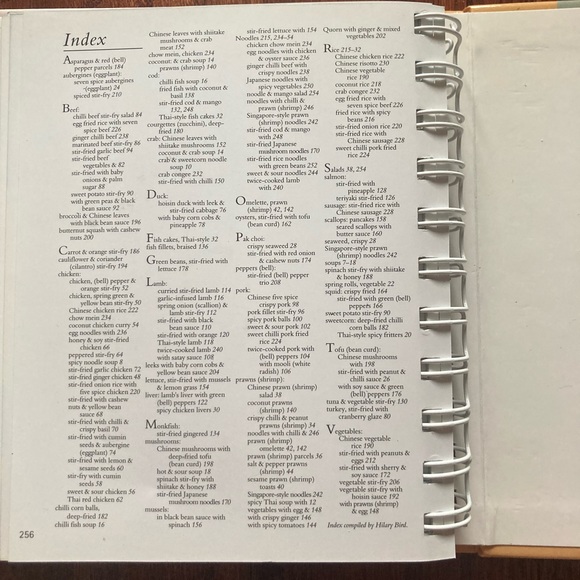 Index
Asparagus & red (bell)
pepper parcels 184
aubergines (eggplant):
seven spice aubergines
(eggplant) 24
spiced stir-fry 210
Beef:
chilli beef stir-fry salad 84
egg fried rice with seven
spice beef 226
ginger chilli beef 238
marinated beef stir-fry 86
stir-fried garlic beef 94
stir-fried beef
vegetables & 82
stir-fried with baby
onions & palm
sugar 88
sweet potato stir-fry 90
with green peas & black
bean sauce 92
broccoli & Chinese leaves
with black bean sauce 196
butternut squash with cashew
nuts 200
Carrot & orange stir-fry 186
cauliflower & coriander
(cilantro) stir-fry 194
chicken:
chicken, (bell) pepper &
orange stir-fry 52
chicken, spring green &
yellow bean stir-fry 50
Chinese chicken rice 222
chow mein 234
coconut chicken curry 54
egg noodles with 236
honey & soy stir-fried
chicken 66
peppered stir-fry 64
spicy noodle soup 8
stir-fried garlic chicken 72
stir-fried ginger chicken 48
stir-fried onion rice with
five spice chicken 220
stir-fried with cashew
nuts & yellow bean
sauce 68
stir-fried with chilli &
crispy basil 70
stir-fried with cumin
seeds & aubergine
(eggplant) 74
stir-fried with lemon &
sesame seeds 60
stir-fry with cumin
seeds 58
sweet & sour chicken 56
Thai red chicken 62
chilli corn balls,
deep-fried 182
chilli fish soup 16
Chinese leaves with shiitake
mushrooms & crab
meat 152
chow mein, chicken 234
coconut & crab soup 14
prawns (shrimp) 140
cod:
chilli fish soup 16
fried fish with coconut &
basil 138
stir-fried cod & mango
132, 248
Thai-style fish cakes 32
courgettes (zucchini), deep-
fried 180
crab: Chinese leaves with
shiitake mushrooms 152
coconut & crab soup 14
crab & sweetcorn noodle
soup 10
crab congee 232
stir-fried with chilli 150
Duck:
hoisin duck with leek &
stir-fried cabbage 76
with baby corn cobs &
pineapple 78
Fish cakes, Thai-style 32
fish fillets, braised 136
Green beans, stir-fried with
lettuce 178
Lamb:
curried stir-fried lamb 114
garlic-infused lamb 116
spring onion (scallion) &
lamb stir-fry 112
stir-fried with black
bean sauce 110
stir-fried with orange 120
Thai-style lamb 118
twice-cooked lamb 240
with satay sauce 108
leeks with baby corn cobs &
yellow bean sauce 204
lettuce, stir-fried with mussels
& lemon grass 154
liver: lamb's liver with green
(bell) peppers 122
spicy chicken livers 30
Monkfish:
stir-fried gingered 134
mushrooms:
Chinese mushrooms with
deep-fried tofu
(bean curd) 198
hot & sour soup 18
spinach stir-fry with
shiitake & honey 188
stir-fried Japanese
mushroom noodles 170
mussels:
in black bean sauce with
spinach 156
stir-fried lettuce with 154
Noodles 215, 234–54
chicken chow mein 234
egg noodles with chicken
& oyster sauce 236
ginger chilli beef with
crispy noodles 238
Japanese noodles with
spicy vegetables 250
noodle & mango salad 254
noodles with chilli &
prawn (shrimp) 246
Singapore-style prawn
(shrimp) noodles 242
stir-fried cod & mango
with 248
stir-fried Japanese
mushroom noodles 170
stir-fried rice noodles
with green beans 252
sweet & sour noodles 244
twice-cooked lamb
with 240
Omelette, prawn
(shrimp) 42, 142
oysters, stir-fried with tofu
(bean curd) 162
Pak choi:
crispy seaweed 28
stir-fried with red onion
& cashew nuts 174
peppers (bell):
stir-fried (bell) pepper
trio 208
pork:
Chinese five spice
crispy pork 98
pork fillet stir-fry 96
spicy pork balls 100
sweet & sour pork 102
sweet chilli pork fried
rice 224
twice-cooked pork with
(bell) peppers 104
with mooli (white
radish) 106
prawns (shrimp):
Chinese prawn (shrimp)
salad 38
coconut prawns
(shrimp) 140
crispy chilli & peanut
prawns (shrimp) 34
noodles with chilli & 246
prawn (shrimp)
omelette 42, 142
prawn (shrimp) parcels 36
salt & pepper prawns
(shrimp) 44
sesame prawn (shrimp)
toasts 40
Singapore-style noodles 242
spicy Thai soup with 12
vegetables with egg & 148
with crispy ginger 146
with spicy tomatoes 144
Quorn with ginger & mixed
vegetables 202
Rice 215–32
Chinese chicken rice 222
Chinese risotto 230
Chinese vegetable
rice 190
coconut rice 218
crab congee 232
egg fried rice with
seven spice beef 226
fried rice with spicy
beans 216
stir-fried onion rice 220
stir-fried rice with
Chinese sausage 228
sweet chilli pork fried
rice 224
Salads 38, 254
salmon:
stir-fried with
pineapple 128
teriyaki stir-fry 126
sausage: stir-fried rice with
Chinese sausage 228
scallops: pancakes 158
seared scallops with
butter sauce 160
seaweed, crispy 28
Singapore-style prawn
(shrimp) noodles 242
soups 7–18
spinach stir-fry with shiitake
& honey 188
spring rolls, vegetable 22
squid: crispy fried 164
stir-fried with green (bell)
peppers 166
sweet potato stir-fry 90
sweetcorn: deep-fried chilli
corn balls 182
Thai-style spicy fritters 20
Tofu (bean curd):
Chinese mushrooms
with 198
stir-fried with peanut &
chilli sauce 26
with soy sauce & green
(bell) peppers 176
tuna & vegetable stir-fry 130
turkey, stir-fried with
cranberry glaze 80
Vegetables:
Chinese vegetable
rice 190
stir-fried with peanuts &
eggs 212
stir-fried with sherry &
soy sauce 172
vegetable stir-fry 206
vegetable stir-fry with
hoisin sauce 192
with prawns (shrimp)
& egg 148
Index compiled by Hilary Bird.
256